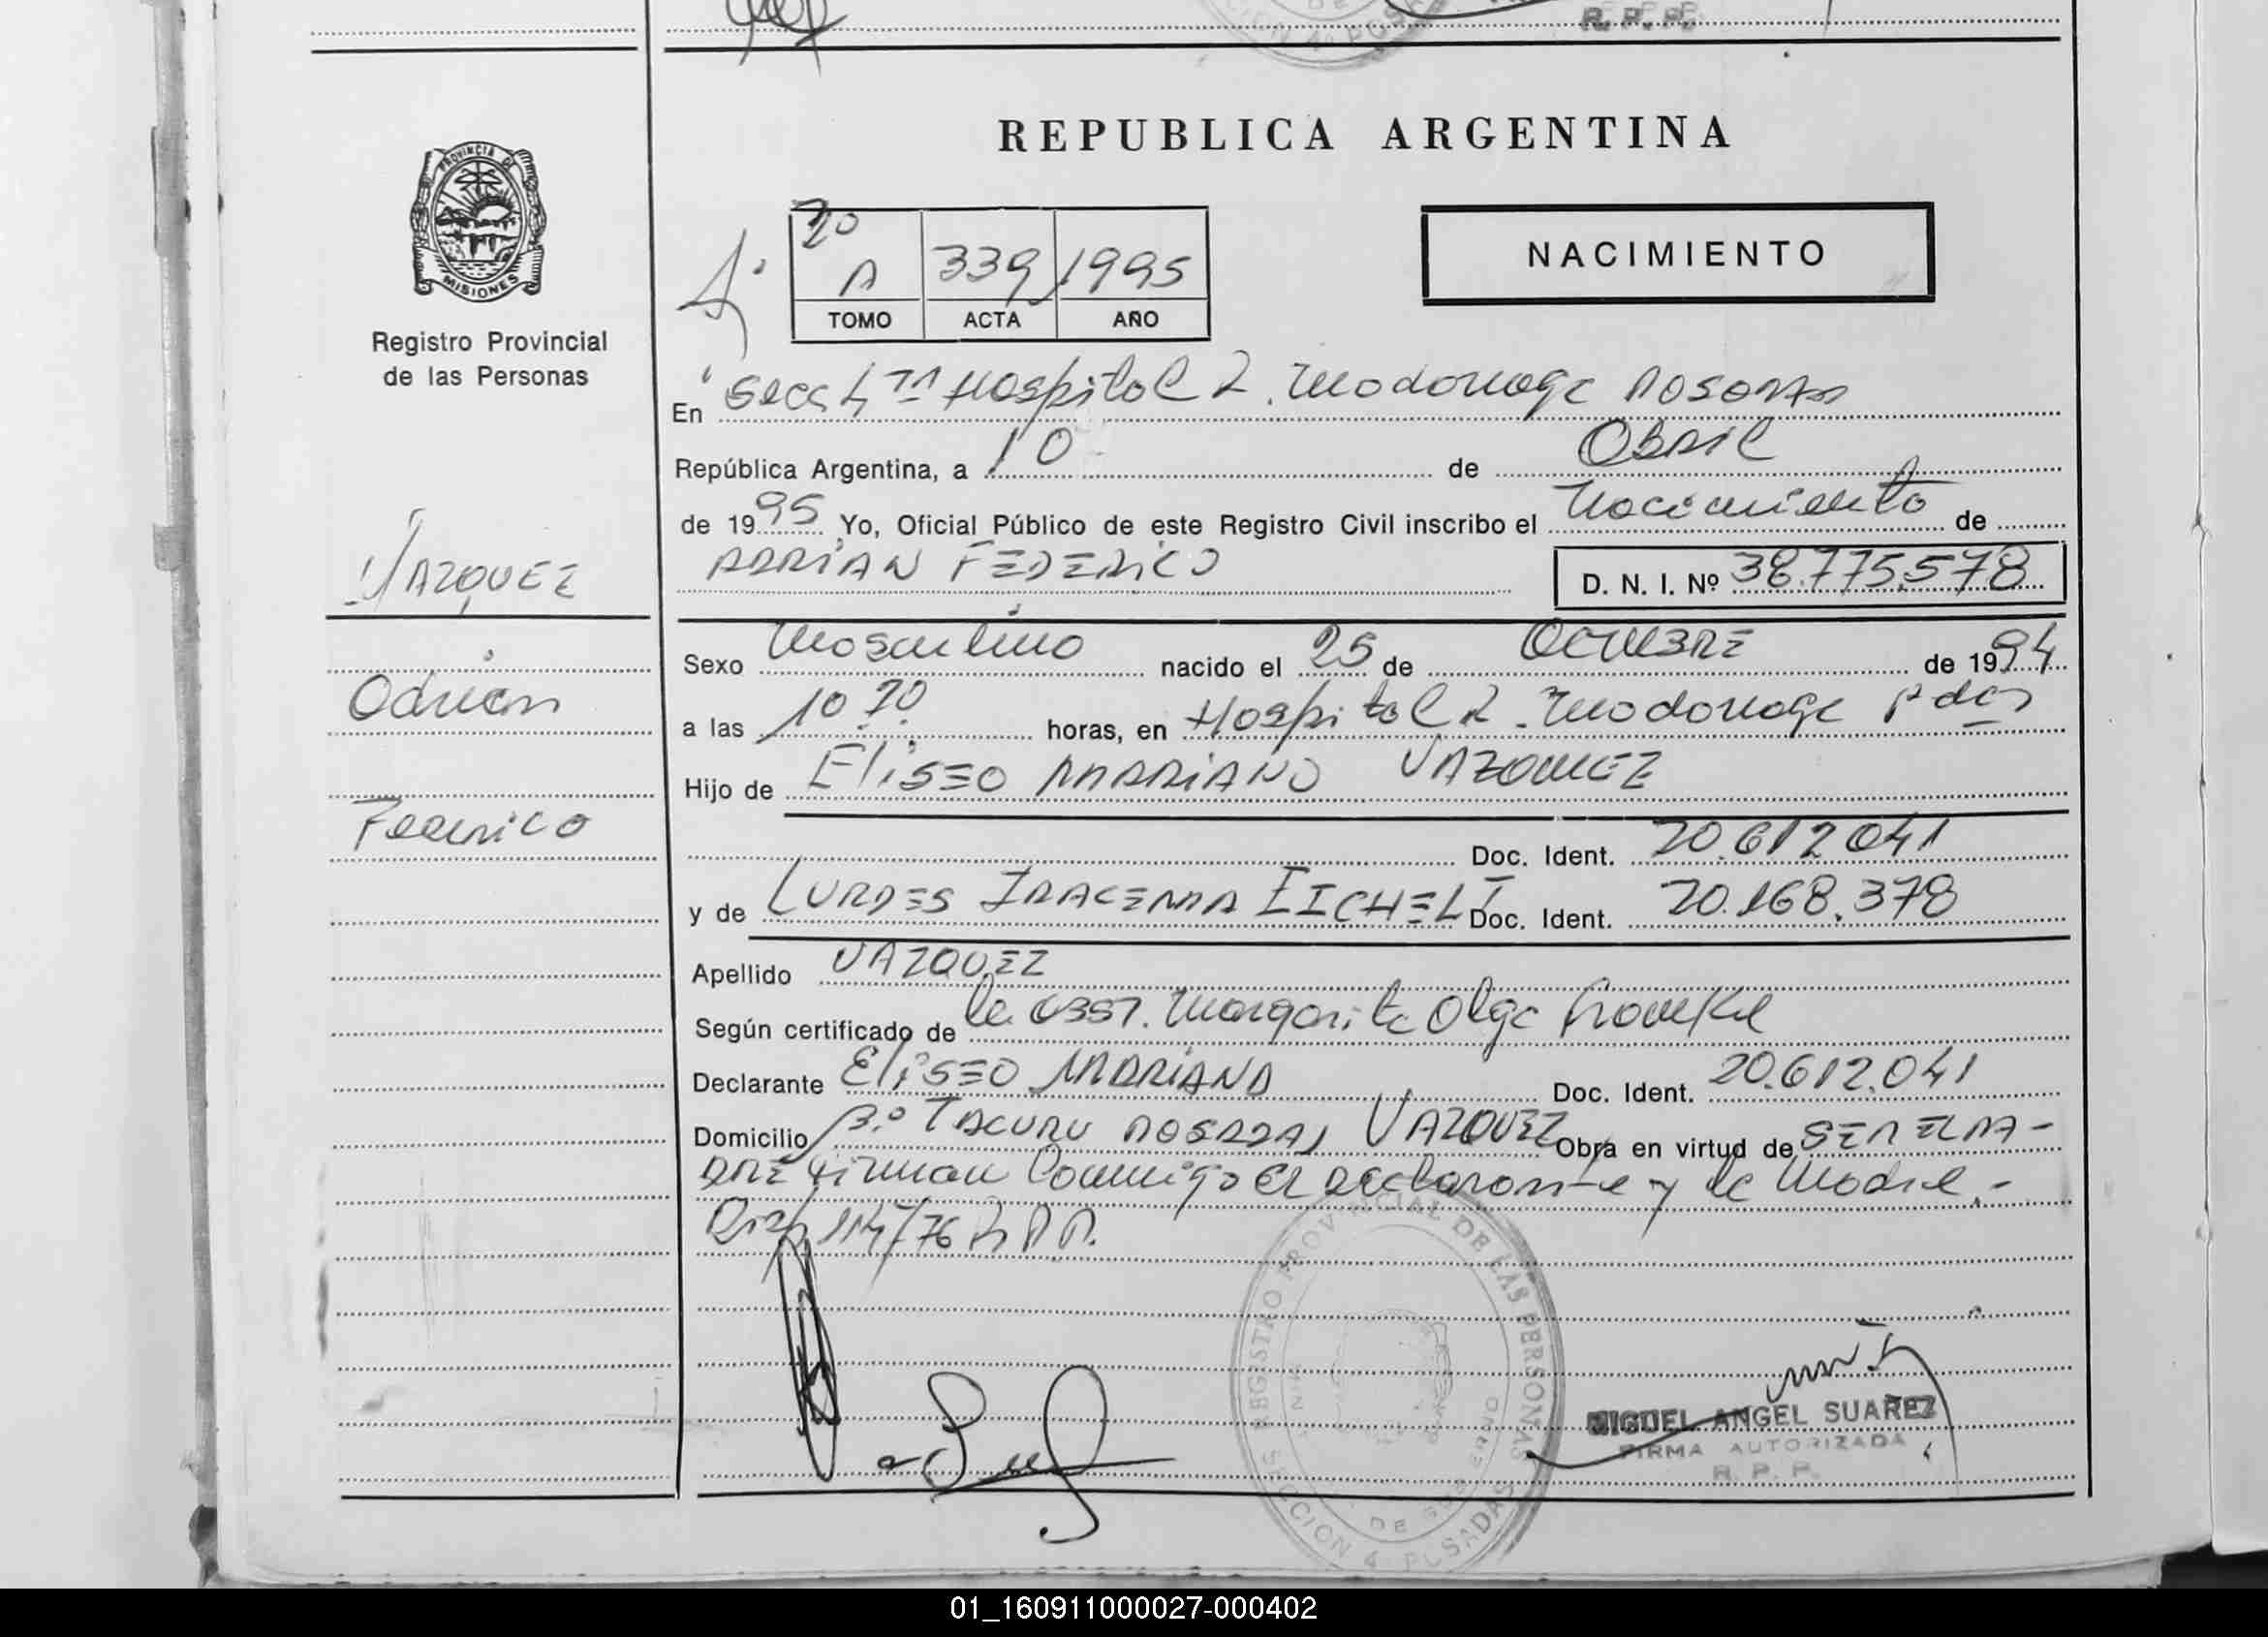 R. P. P.
REPUBLICA ARGENTINA
PROVINCIA DE
MISIONES
Registro Provincial
de las Personas
NACIMIENTO
4ª
20
A 339 1995
TOMO ACTA AÑO
En Secc 4ta Hospital R. Madariaga Posadas
República Argentina, a 10 de Abril
de 1995 Yo, Oficial Público de este Registro Civil inscribo el Nacimiento de
ADRIAN FEDERICO
D. N. I. Nº 38.775.578
VAZQUEZ
Adrian
Federico
Sexo Masculino nacido el 25 de OCTUBRE de 1994
a las 10 horas, en Hospital R. Madariaga Pdas
Hijo de ELISEO MARIANO VAZQUEZ
Doc. Ident. 20.612.041
y de LURDES IRACEMA EICHELT Doc. Ident. 20.168.378
Apellido VAZQUEZ
Según certificado de la OBST. Margarita Olga
Declarante ELISEO MARIANO Doc. Ident. 20.612.041
Domicilio Bº TACURU POSADAS VAZQUEZ Obra en virtud de SER EL PA-
DRE firman Conmigo el declarante y la Madre.-
114/76 R.P.P.
REGISTRO PROVINCIAL DE LAS PERSONAS
SECCION 4ª POSADAS
MIGUEL ANGEL SUAREZ
FIRMA AUTORIZADA
R. P. P.
01_160911000027-000402